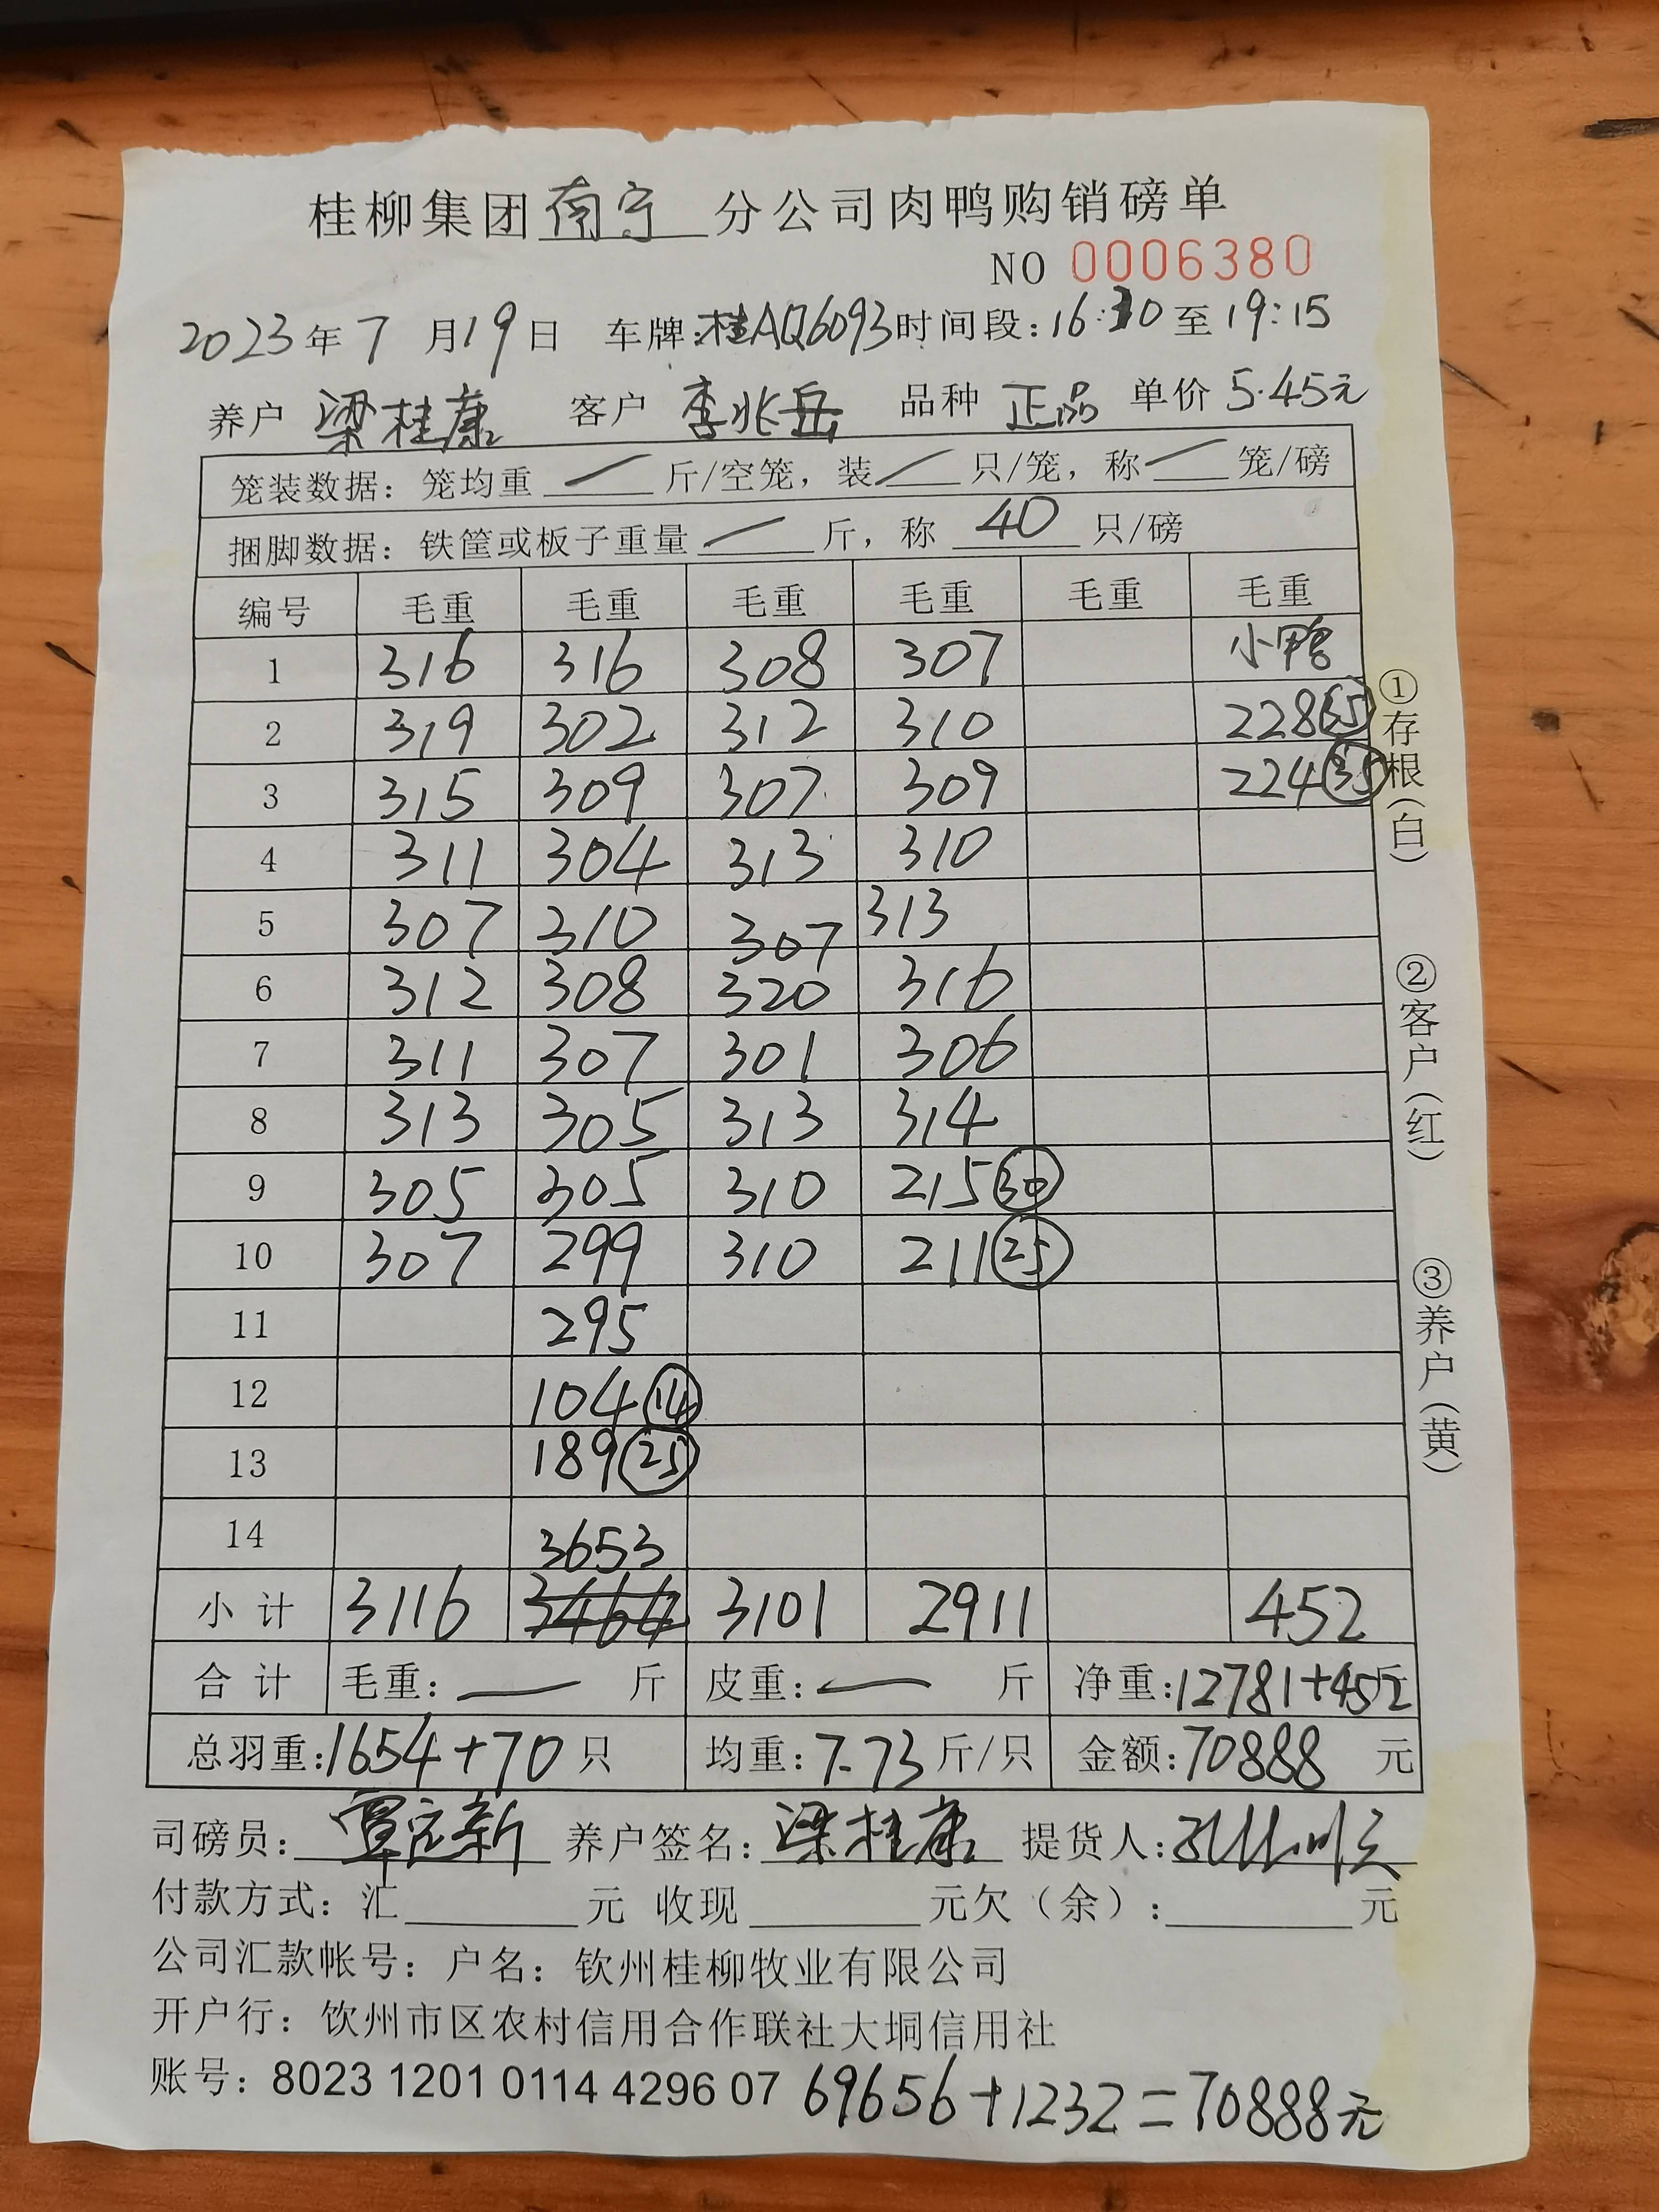 桂柳集团南宁分公司肉鸭购销磅单
NO 0006380
2023年7月19日 车牌:桂AQ6093时间段:16:30至19:15
养户 梁桂康 客户 李兆岳 品种 正品 单价 5.45元
笼装数据：笼均重 — 斤/空笼，装 — 只/笼，称 — 笼/磅
捆脚数据：铁筐或板子重量 — 斤，称 40 只/磅
编号 毛重 毛重 毛重 毛重 毛重 毛重
1 316 316 308 307 小鸭
2 319 302 312 310 228 35
3 315 309 307 309 224 35
4 311 304 313 310
5 307 310 307 313
6 312 308 320 316
7 311 307 301 306
8 313 305 313 314
9 305 305 310 215 30
10 307 299 310 211 25
11 295
12 104 14
13 189 25
14 3653
小计 3116 3464 3101 2911 452
合计 毛重：— 斤 皮重：— 斤 净重:12781+452斤
总羽重:1654+70只 均重:7.73斤/只 金额:70888 元
司磅员:覃定新 养户签名:梁桂康 提货人:
付款方式：汇 元 收现 元欠（余）: 元
公司汇款帐号：户名：钦州桂柳牧业有限公司
开户行：钦州市区农村信用合作联社大垌信用社
账号：8023 1201 0114 4296 07 69656+1232=70888元
①存根(白)
②客户(红)
③养户(黄)